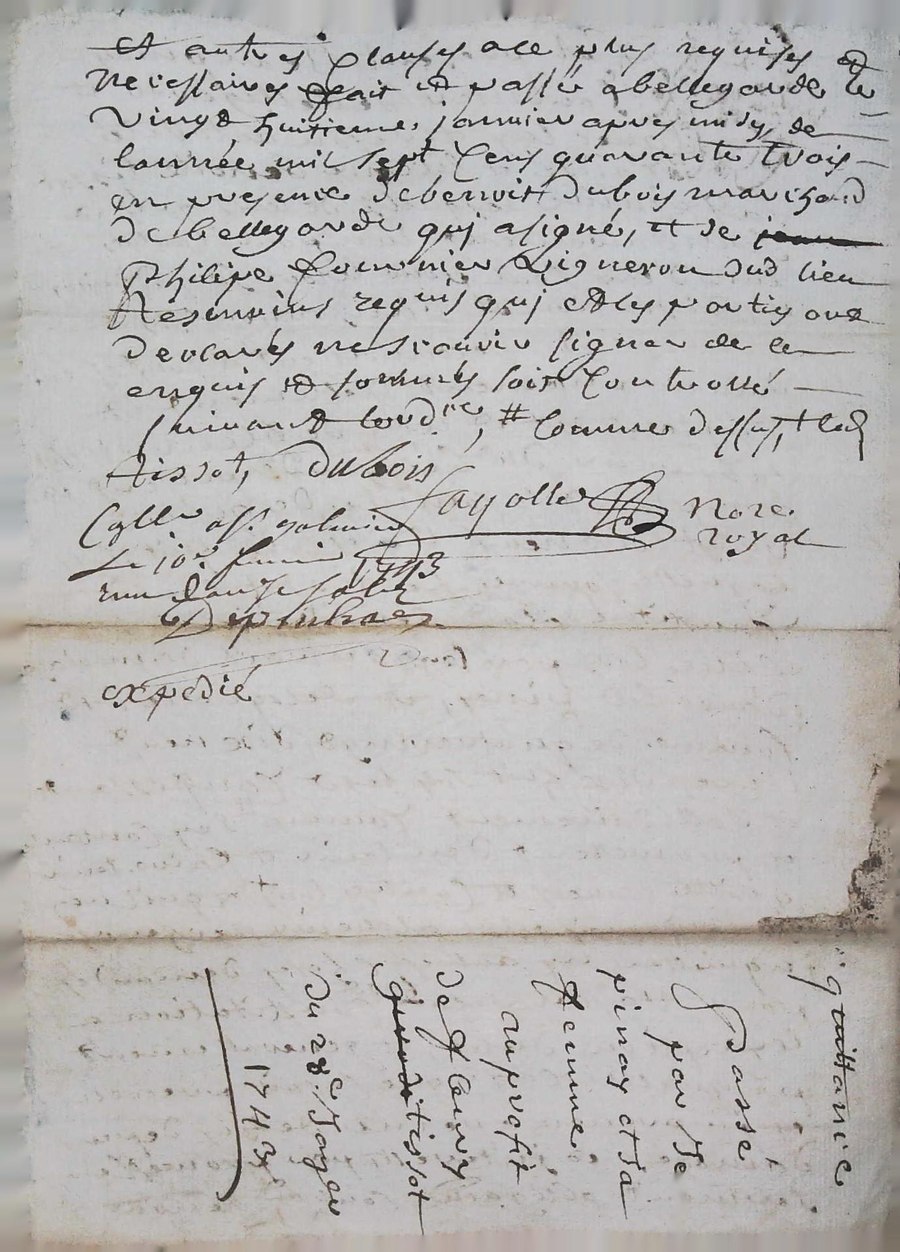 et autres clauses a ce plus requises et
necessaires fait et passé a bellegarde le
vingt huitieme janvier apres midy de
lannée mil sept cens quarante trois
en presence de benoit dubois marchand
de bellegarde qui a signé, et de
Philipe fournier vigneron dud lieu
tesmoins requis qui et les parties ont
declarés ne scavoir signer de ce
enquis et sommés soit controllé
suivant lord.ce, # comme dessus,
tissot, dubois
fayolle Nore
royal
Colle a st galmier
Le 10e 1743
recu douze sols
expedié
quittance
Passé
par Je
pinay et sa
femme
au profit
de fleury
tissot
du 28e Janer
1743